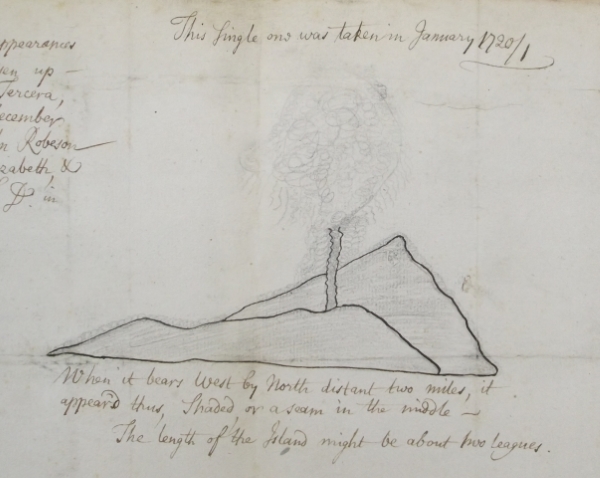 This Single one was taken in January 1720/1
ppearances
en up —
Tercera,
ecember
n Robeson
zabeth, &
D.º in
When it bears West by North distant two miles, it
appear'd thus, Shaded or a seam in the middle —
The length of the Island might be about two leagues.